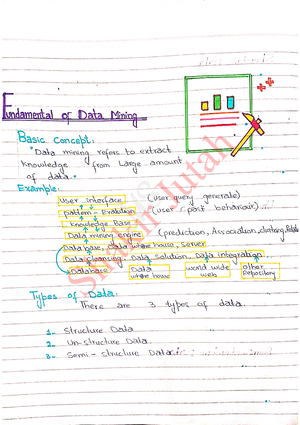 Fundamental of Data Mining
Basic concept:
"Data mining refers to extract
knowledge from Large amount
of data."
Example:
User interface (user query generate)
pattern - Evalution (user / past behavior)...
Knowledge Base
Data mining engine (prediction, Association, clustering,
Data base, data ware house, server
Data cleansing, Data Solution, Data integration...
Database Data ware house world wide web other Repository
Types of Data:
There are 3 types of data.
1- Structure Data
2- Un-structure Data
3- Semi-structure Data
Shakir Jutah